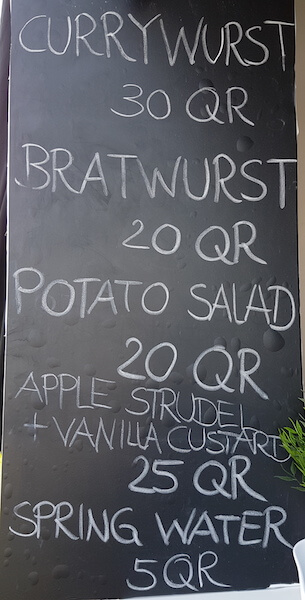 CURRYWURST
30 QR
BRATWURST
20 QR
POTATO SALAD
20 QR
APPLE STRUDEL
+ VANILLA CUSTARD
25 QR
SPRING WATER
5QR